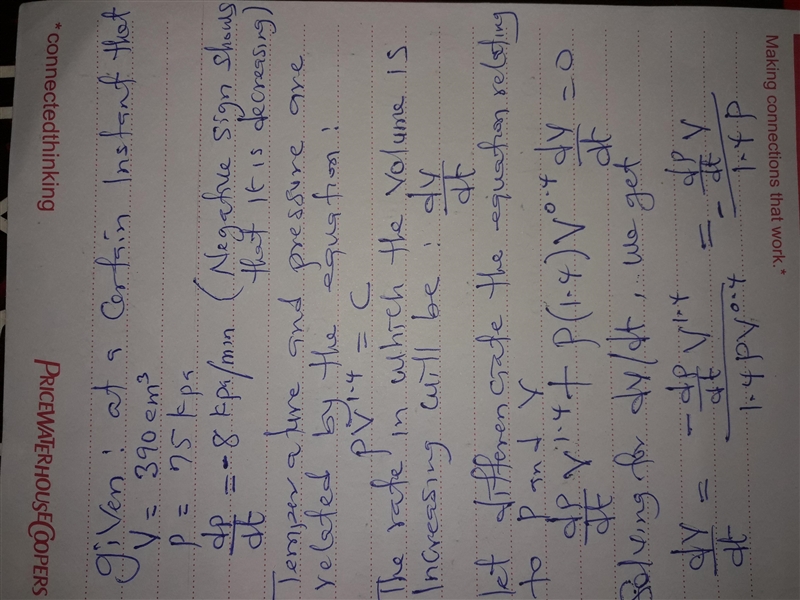 Making connections that work.*
*connectedthinking
PRICEWATERHOUSECOOPERS
given: at a certain instant that
V = 390 cm³
P = 75 kpa
dP/dt = -8 kpa/min (Negative sign shows
that it is decreasing)
Temperature and pressure are
related by the equation:
PV^1.4 = C
The rate in which the volume is
increasing will be: dV/dt
let differenciate the equation relating
to P and V
dP/dt V^1.4 + P(1.4)V^0.4 dV/dt = 0
Solving for dV/dt, we get
dV/dt = -dP/dt V^1.4 / 1.4PV^0.4 = -dP/dt V / 1.4P